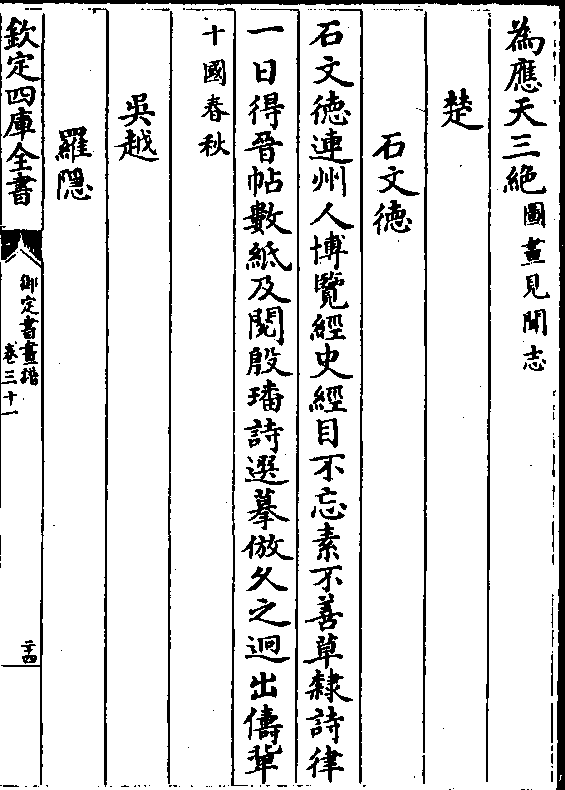 為應天三絶圖畫見聞志
楚
石文徳
石文徳連州人博覽經史經目不忘素不善草隸詩律
一日得晉帖數紙及閱殷璠詩選摹倣久之迥出儔輩
十國春秋
吳越
羅隱
欽定四庫全書
御定書畫譜
卷三十一
二十四